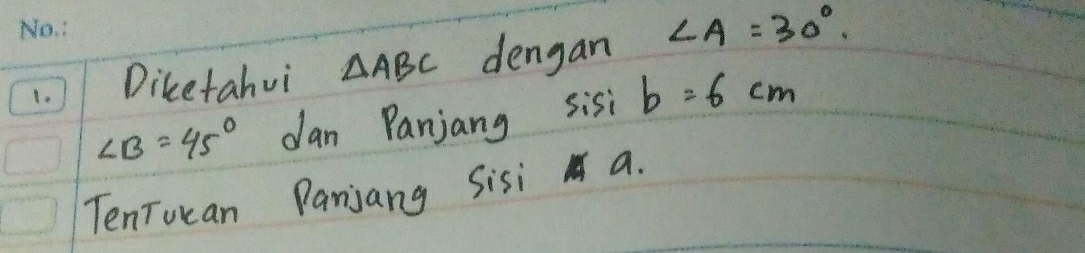 No.:
1. Diketahui ΔABC dengan ∠A = 30°.
∠B = 45° dan Panjang sisi b = 6 cm
Tentukan Panjang sisi a.